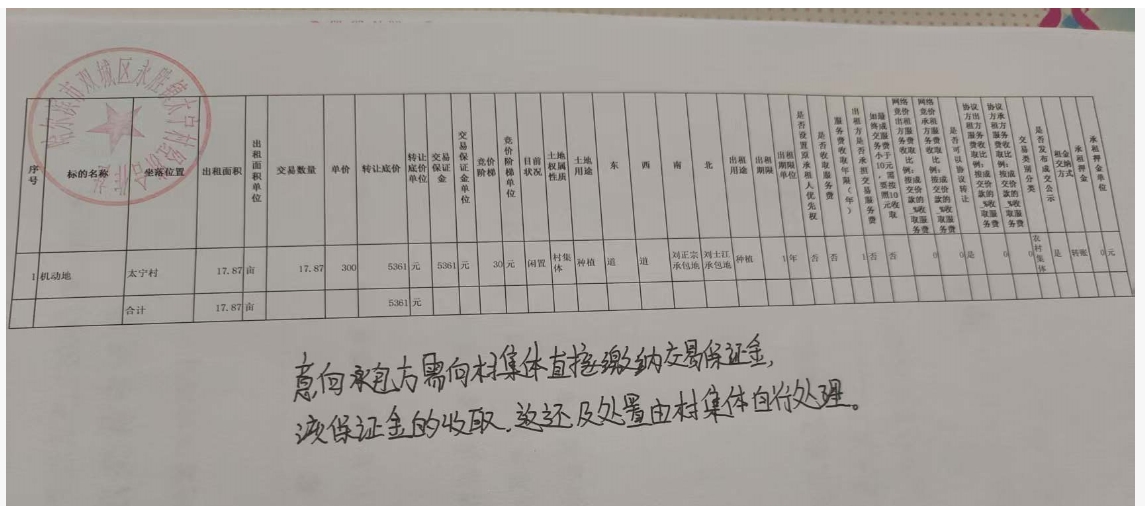 哈尔滨市双城区永胜镇太宁村股份
合作社
序号 标的名称 坐落位置 出租面积 出租面积单位 交易数量 单价 转让底价 转让底价单位 交易保证金 交易保证金单位 竞价阶梯 竞价阶梯单位 目前状况 土地权属性质 土地用途 东 西 南 北 出租用途 出租期限 出租期限单位 是否设置原承租人优先权 是否收取服务费 服务费收取年限(年) 出租方是否承担交易服务费 如最终成交服务费小于10元,需要按照10元收取 网络竞价出租方服务费收取比例:按成交价款的_%收取服务费 网络竞价承租方服务费收取比例:按成交价款的_%收取服务费 是否可以协议转让 协议方出租方服务费收取比例:按成交价款的_%收取服务费 协议方承租方服务费收取比例:按成交价款的_%收取服务费 交易类别分类 是否发布成交公示 租金交纳方式 承租押金 承租押金单位
1 机动地 太宁村 17.87 亩 17.87 300 5361 元 5361 元 30 元 闲置 村集体 种植 道 道 刘正宗承包地 刘士江承包地 种植 1 年 否 否 1 否 否 0 0 是 0 0 农村集体 是 转账 0 元
合计 17.87 亩 5361 元
意向承包方需向村集体直接缴纳交易保证金,
该保证金的收取、退还及处置由村集体自行处理。